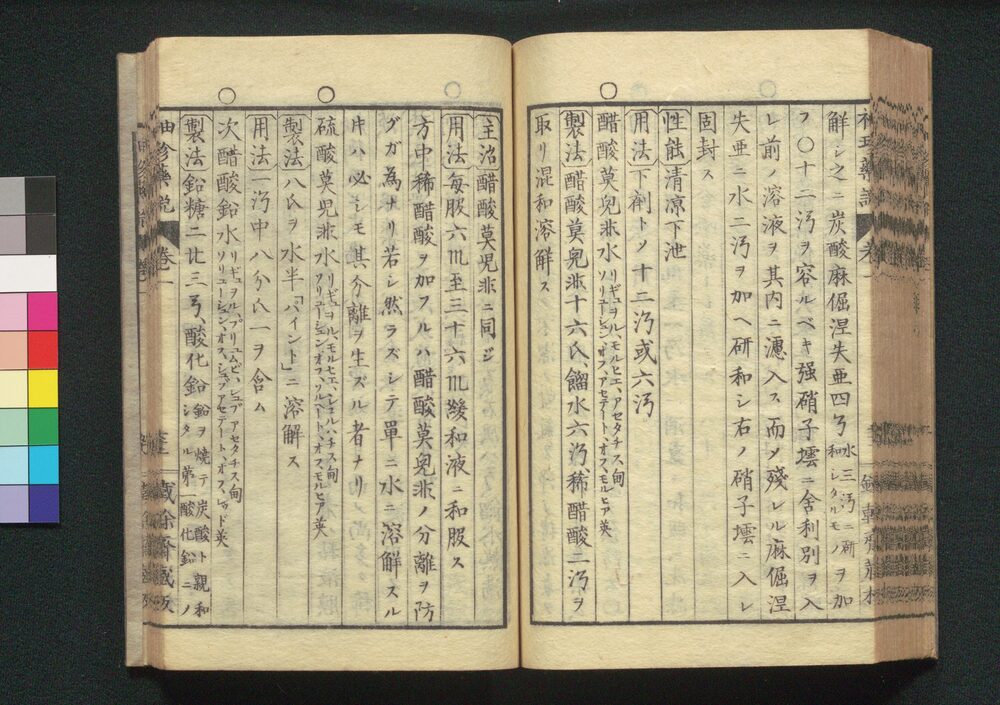 解シ之ニ炭酸麻倔涅失亜四弓 水三汚ニ研和シタルモノヲ加
フ〇十二汚ヲ容ルベキ强硝子壜ニ舎利別ヲ入
レ前ノ溶液ヲ其内ニ濾入ス而ノ殘レル麻倔涅
失亜ニ水二汚ヲ加ヘ研和シ右ノ硝子壜ニ入レ
固封ス
性能 清凉下泄
用法 下剤トノ十二汚或六汚
〇
醋酸莫兒非水 リギュヲル、モルヒエ、アセタチス甸 ソリューション、オフ、アセテート、オフ、モルヒア英
製法 醋酸莫兒非十六氏餾水六汚、稀醋酸二汚ヲ
取リ混和溶解ス
主治 醋酸莫児非ニ同ジ
用法 每服六㎖至三十六㎖緩和液ニ和服ス
方中稀醋酸ヲ加フルハ醋酸莫兒非ノ分離ヲ防
グガ為ナリ若シ然ラズシテ單ニ水ニ溶解スル
片ハ必シモ其分離ヲ生ズル者ナリ
〇
硫酸莫児非水 リギュヲル、モルヒエ、シュルハチス甸 ソリューション、オフ、ソルヘート、オフ、モルヒア英
製法 八氏ヲ水半「パイント」ニ溶解ス
用法 一汚中 八分氏一ヲ含ム
〇
次醋酸鉛水 リギュヲル、プリュムビ、シュブアセタチス甸 ソリューション、オフ、シュブアセテート、オフ、レッド英
製法 鉛糖二廿三弓、酸化鉛 鉛ヲ焼テ炭酸ト親和シタル第一酸化鉛ニノ
袖珍藥説 卷一